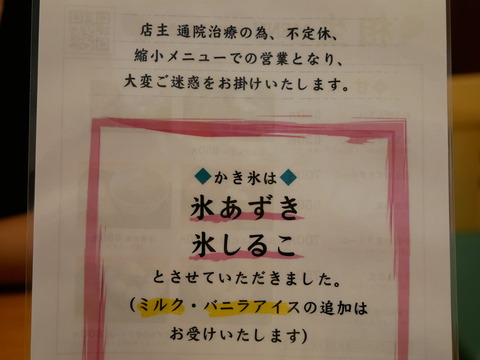 店主 通院治療の為、不定休、
縮小メニューでの営業となり、
大変ご迷惑をお掛けいたします。
◆かき氷は◆
氷あずき
氷しるこ
とさせていただきました。
（ミルク・バニラアイスの追加は
お受けいたします）